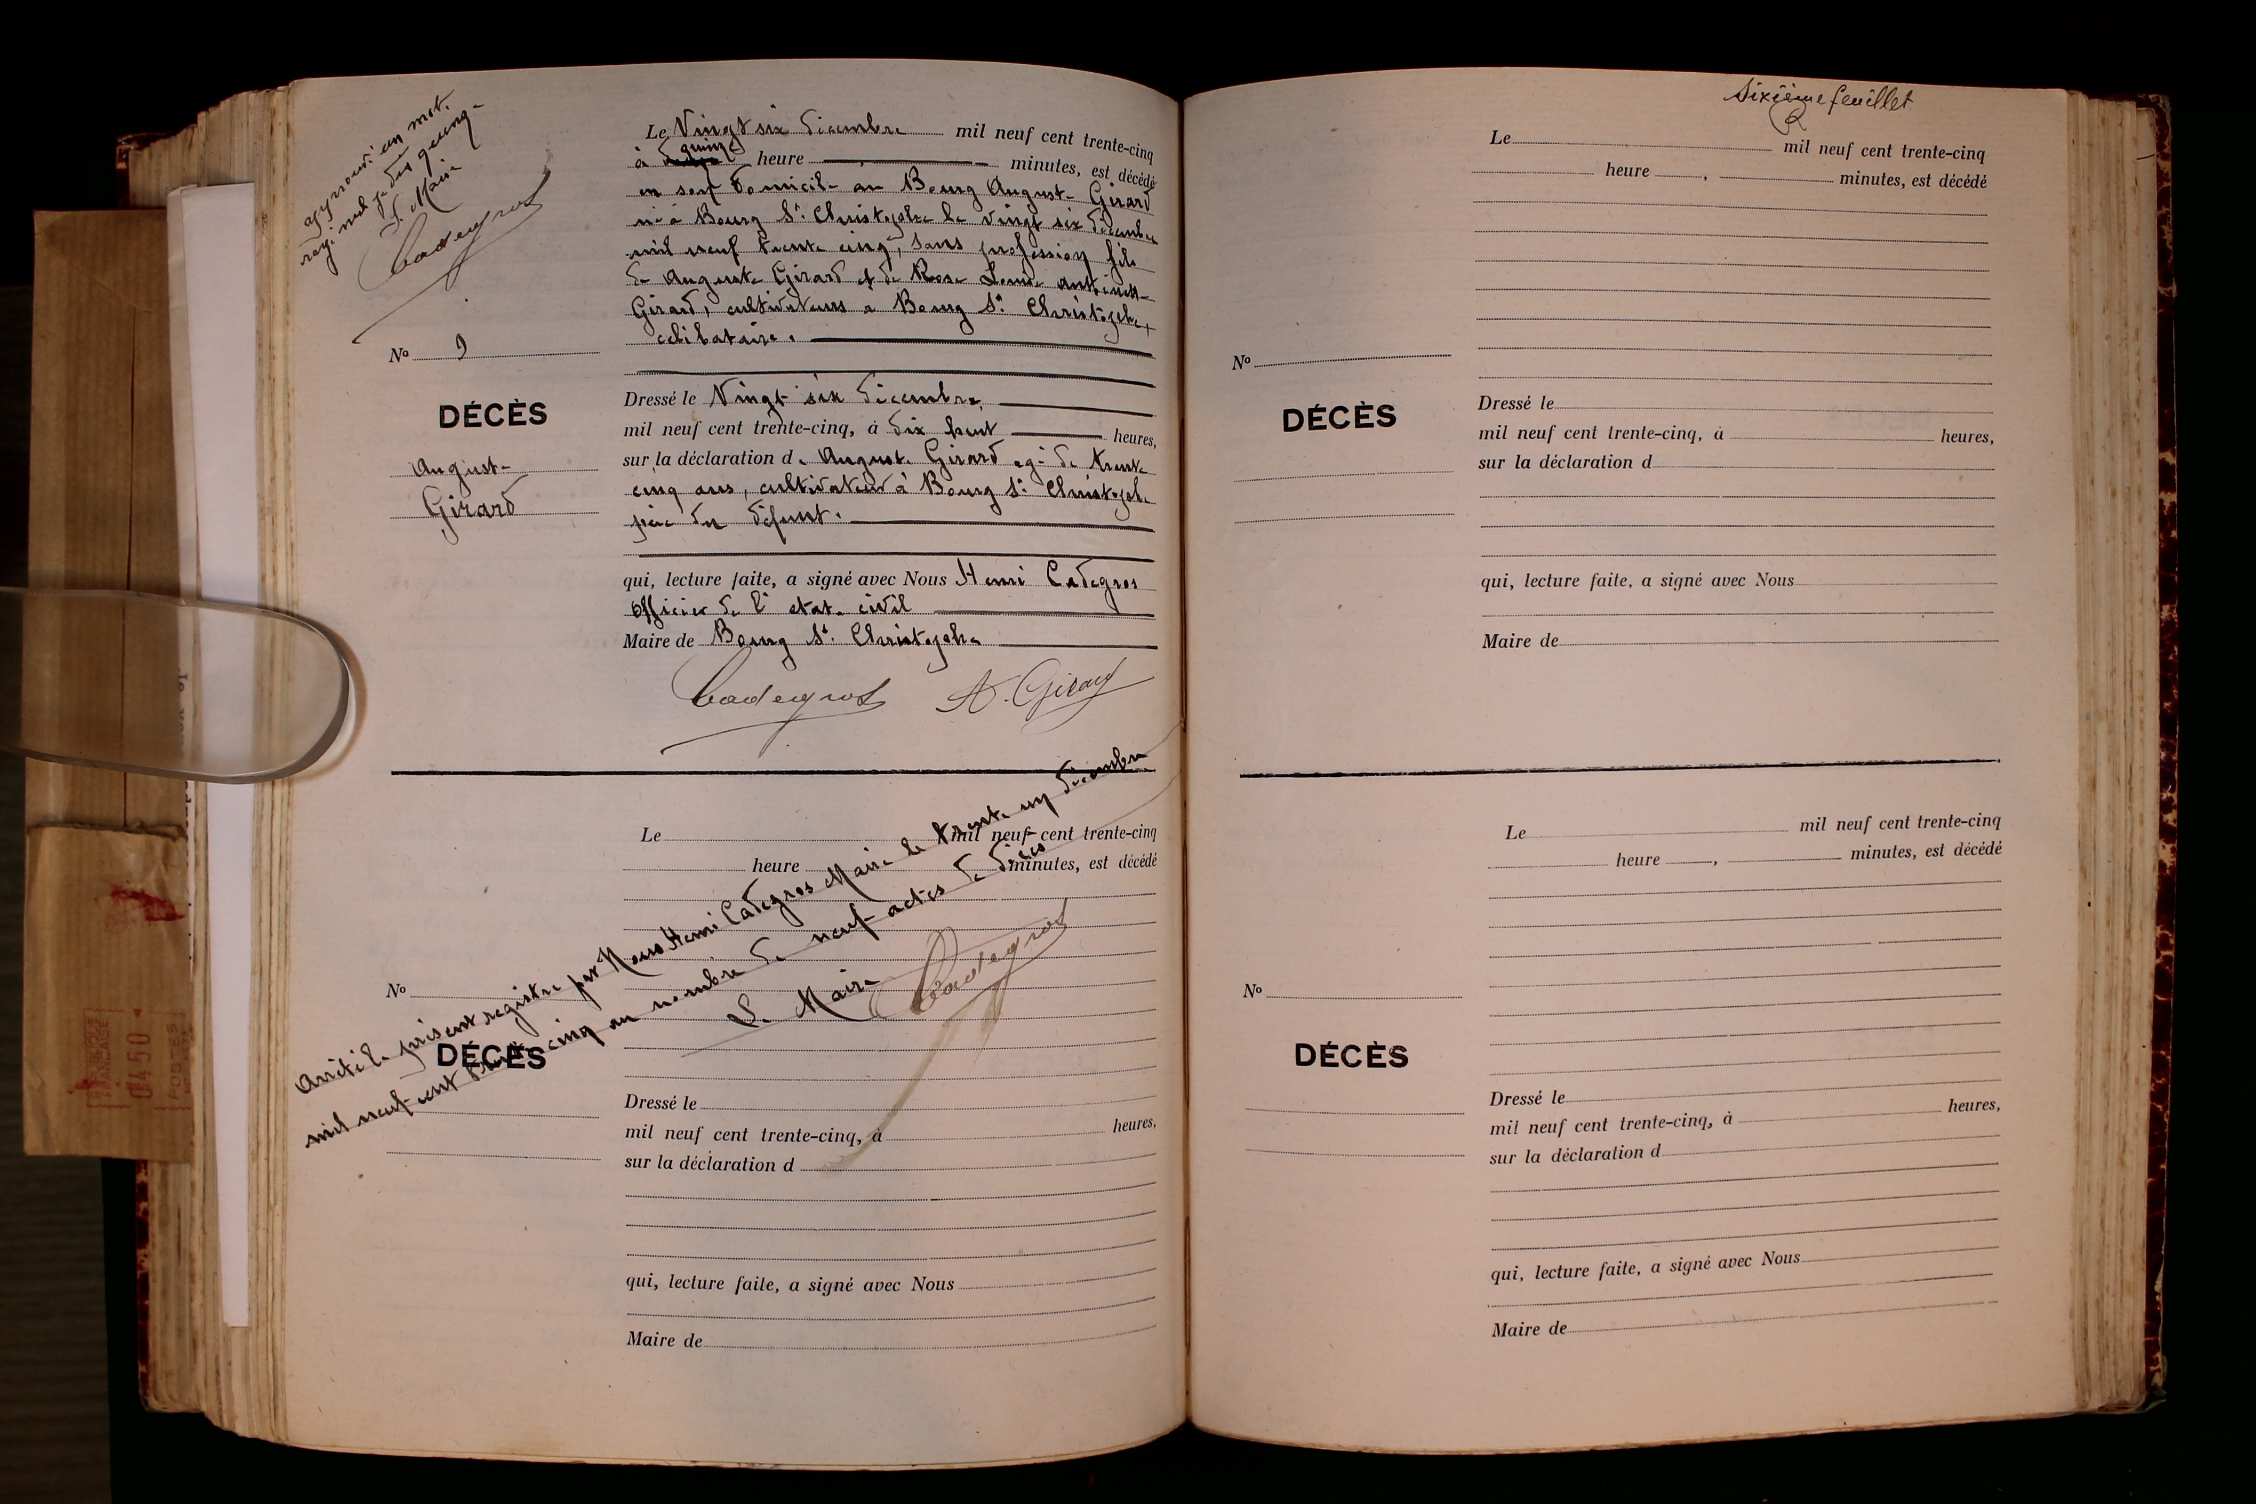 approuvé un mot
rayé nul
Le Maire
Cadegros
Le Vingt six décembre mil neuf cent trente-cinq
à quinze heure minutes, est décédé
en son domicile au Bourg Auguste Girard
né à Bourg St. Christophe le vingt six décembre
mil neuf trente cinq, sans profession fils
de Auguste Girard et de Rose Girard, cultivateurs a Bourg St. Christophe,
célibataire.
No 9
DÉCÈS
Auguste
Girard
Dressé le Vingt six décembre
mil neuf cent trente-cinq, à dix huit heures,
sur la déclaration de Auguste Girard agé de trente
cinq ans, cultivateur à Bourg St. Christophe
père du défunt.
qui, lecture faite, a signé avec Nous Henri Cadegros
officier de l'état civil
Maire de Bourg St. Christophe
Cadegros A. Girard
Le mil neuf cent trente-cinq
heure minutes, est décédé
No
DÉCÈS
Arrêté le présent registre par Nous Henri Cadegros Maire le trente un décembre
mil neuf cent trente cinq au nombre de neuf actes de décès
Le Maire Cadegros
Dressé le
mil neuf cent trente-cinq, à heures,
sur la déclaration d
qui, lecture faite, a signé avec Nous
Maire de
0450
POSTES
Sixième feuillet
Le mil neuf cent trente-cinq
heure , minutes, est décédé
No
DÉCÈS
Dressé le
mil neuf cent trente-cinq, à heures,
sur la déclaration d
qui, lecture faite, a signé avec Nous
Maire de
Le mil neuf cent trente-cinq
heure , minutes, est décédé
No
DÉCÈS
Dressé le
mil neuf cent trente-cinq, à heures,
sur la déclaration d
qui, lecture faite, a signé avec Nous
Maire de